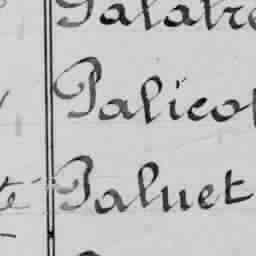 Palatre
Palicot
Paluet
té